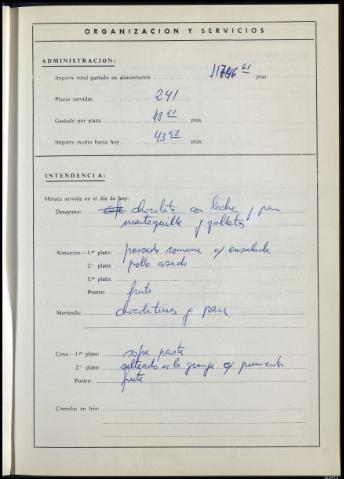 ORGANIZACION Y SERVICIOS
ADMINISTRACION:
Importe total gastado en alimentación 11746 61 ptas.
Plazas servidas 241
Gastado por plaza 48 ptas.
Importe medio hasta hoy 43 ptas.
INTENDENCIA:
Minuta servida en el día de hoy:
Desayuno: chocolate con leche y pan
mantequilla y galletas
Almuerzo.—1.er plato: pescado romana c/ ensalada
2.º plato: pollo asado
3.er plato:
Postre: fruta
Merienda: chocolatinas y pan
Cena.—1.er plato: sopa pasta
2.º plato: salteado a la granja c/ pimiento
Postre: fruta
Comidas en frío: